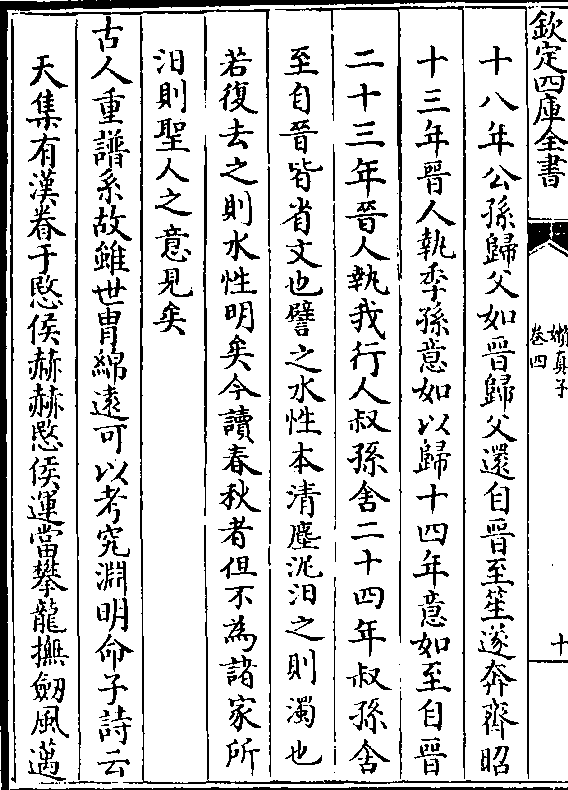 欽定四庫全書
嬾真子
卷四
十
十八年公孫歸父如晉歸父還自晉至笙遂奔齊昭
十三年晉人執季孫意如以歸十四年意如至自晉
二十三年晉人執我行人叔孫舍二十四年叔孫舍
至自晉皆省文也譬之水性本清塵泥汨之則濁也
若復去之則水性明矣今讀春秋者但不為諸家所
汨則聖人之意見矣
古人重譜系故雖世胄綿遠可以考究淵明命子詩云
天集有漢眷于愍侯赫赫愍侯運當攀龍撫劔風邁